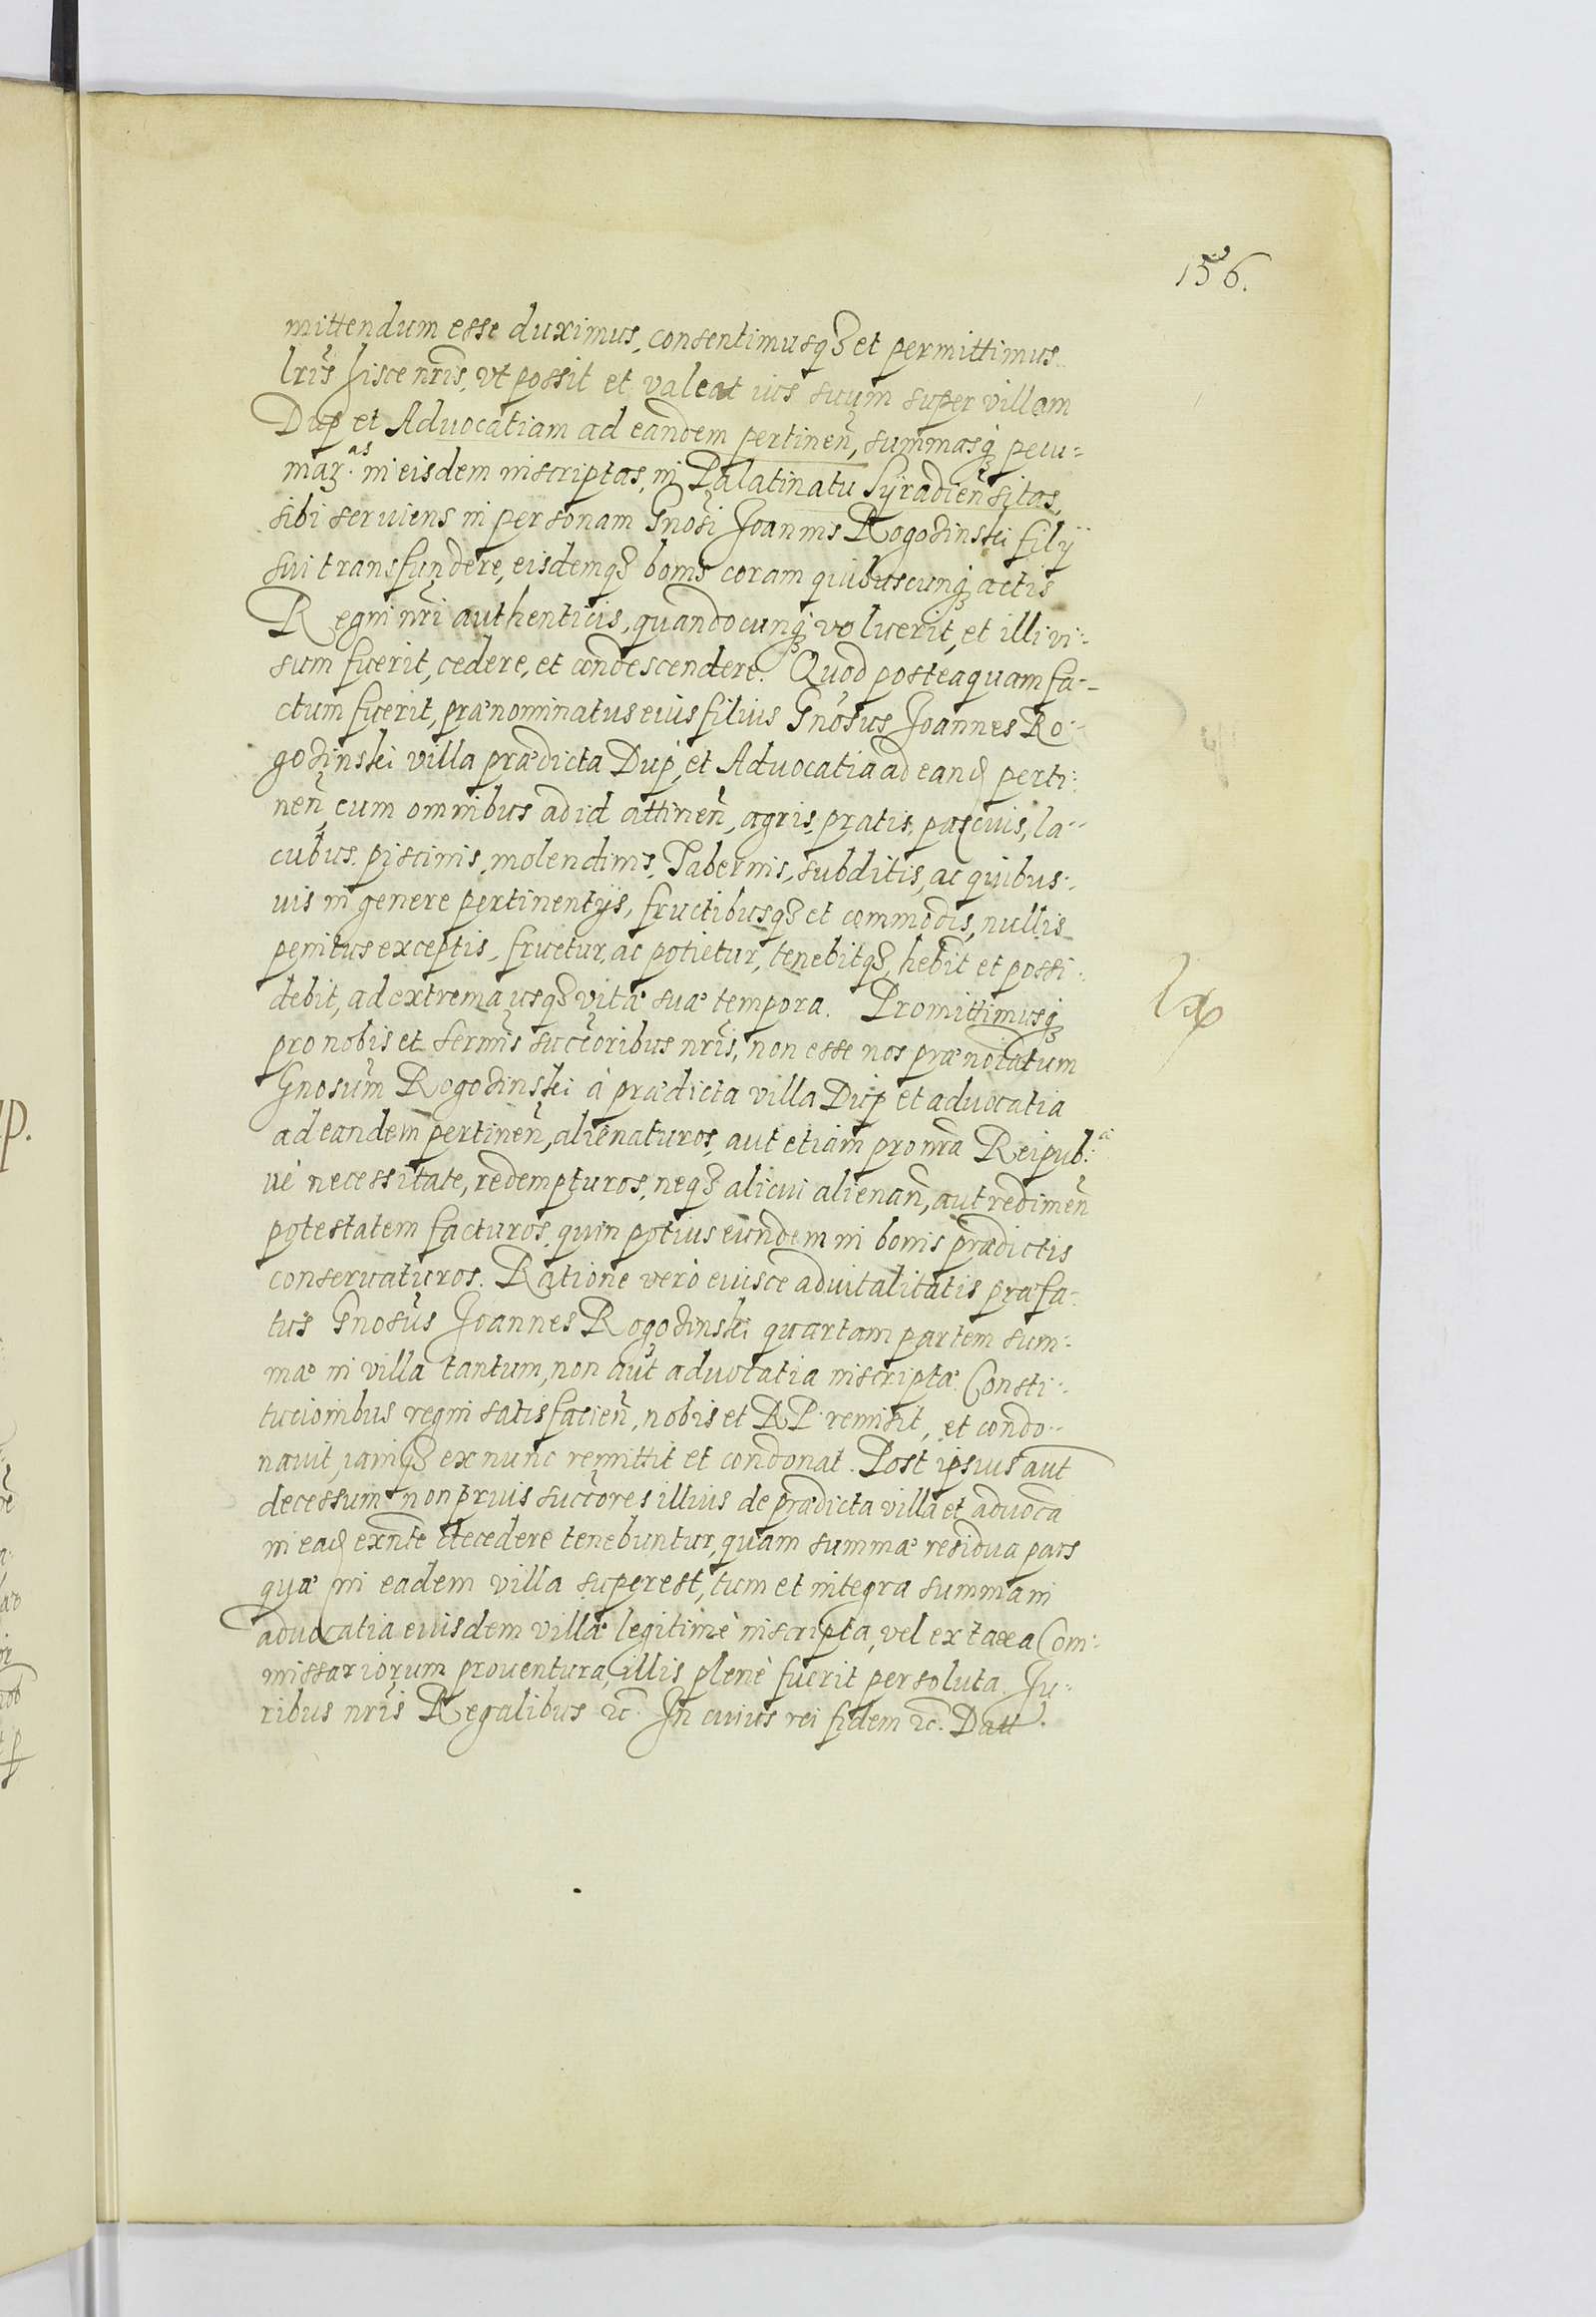 156.
mittendum esse duximus, consentimusq₃ et permittimus
lris hisce nris, vt possit et valeat ius suum super villam
Dup et Advocatiam ad eandem pertinen, summasq₃ pecu-
niar.as in eisdem inscriptas, in Palatinatu Syradien sitas,
sibi seruiens in personam Gnosi Joannis Rogozinski filij
sui transfundere, eisdemq₃ bonis coram quibuscunq₃ actis
Regni nri authenticis, quandocunq₃ voluerit, et illi vi-
sum fuerit, cedere, et condescendere. Quod posteaquam fa-
ctum fuerit, prænominatus eius filius Gnosus Joannes Ro-
gozinski villa prædicta Dup, et Aduocatia ad eand perti-
nen, cum omnibus ad id attinen, agris, pratis, pascuis, la-
cubus, piscinis, molendinis, Tabernis, subditis, ac quibus-
uis in genere pertinentijs, fructibusq₃ et commodis, nullis
penitus exceptis, fruetur, ac potietur, tenebitq₃, hebit et possi-
debit, ad extrema usq₃ vitæ suæ tempora. Promittimusq₃
pro nobis et sermis succoribus nris, non esse nos prænotatum
Gnosum Rogozinski à prædicta villa Dup et aduocatia
ad eandem pertinen, alienaturos, aut etiam pro nra Reipub:a
uè necessitate, redempturos, neq₃ alicui alienan, aut redimen
potestatem facturos, quin potius eundem in bonis prædictis
conseruaturos. Ratione verò euisce aduitalitatis præfa-
tus Gnosus Joannes Rogozinski quartam partem sum-
mæ in villa tantum, non aut aduocatia inscriptæ. Consti-
tucionibus regni satisfacien, nobis et RP. remisit, et condo-
nauit, iamq₃ ex nunc remittit et condonat. Post ipsius aut
decessum non prius succores illius de prædicta villa et aduoca
in ead exnte decedere tenebuntur, quam summæ residua pars
quæ in eadem villa superest, tum et integra summa in
aduocatia eiusdem villæ legitimè inscripta, vel ex taxa Com-
missariorum prouentura, illis plenè fuerit persoluta. Ju-
ribus nris Regalibus ꝛc. In cuius rei fidem ꝛc. Datt.